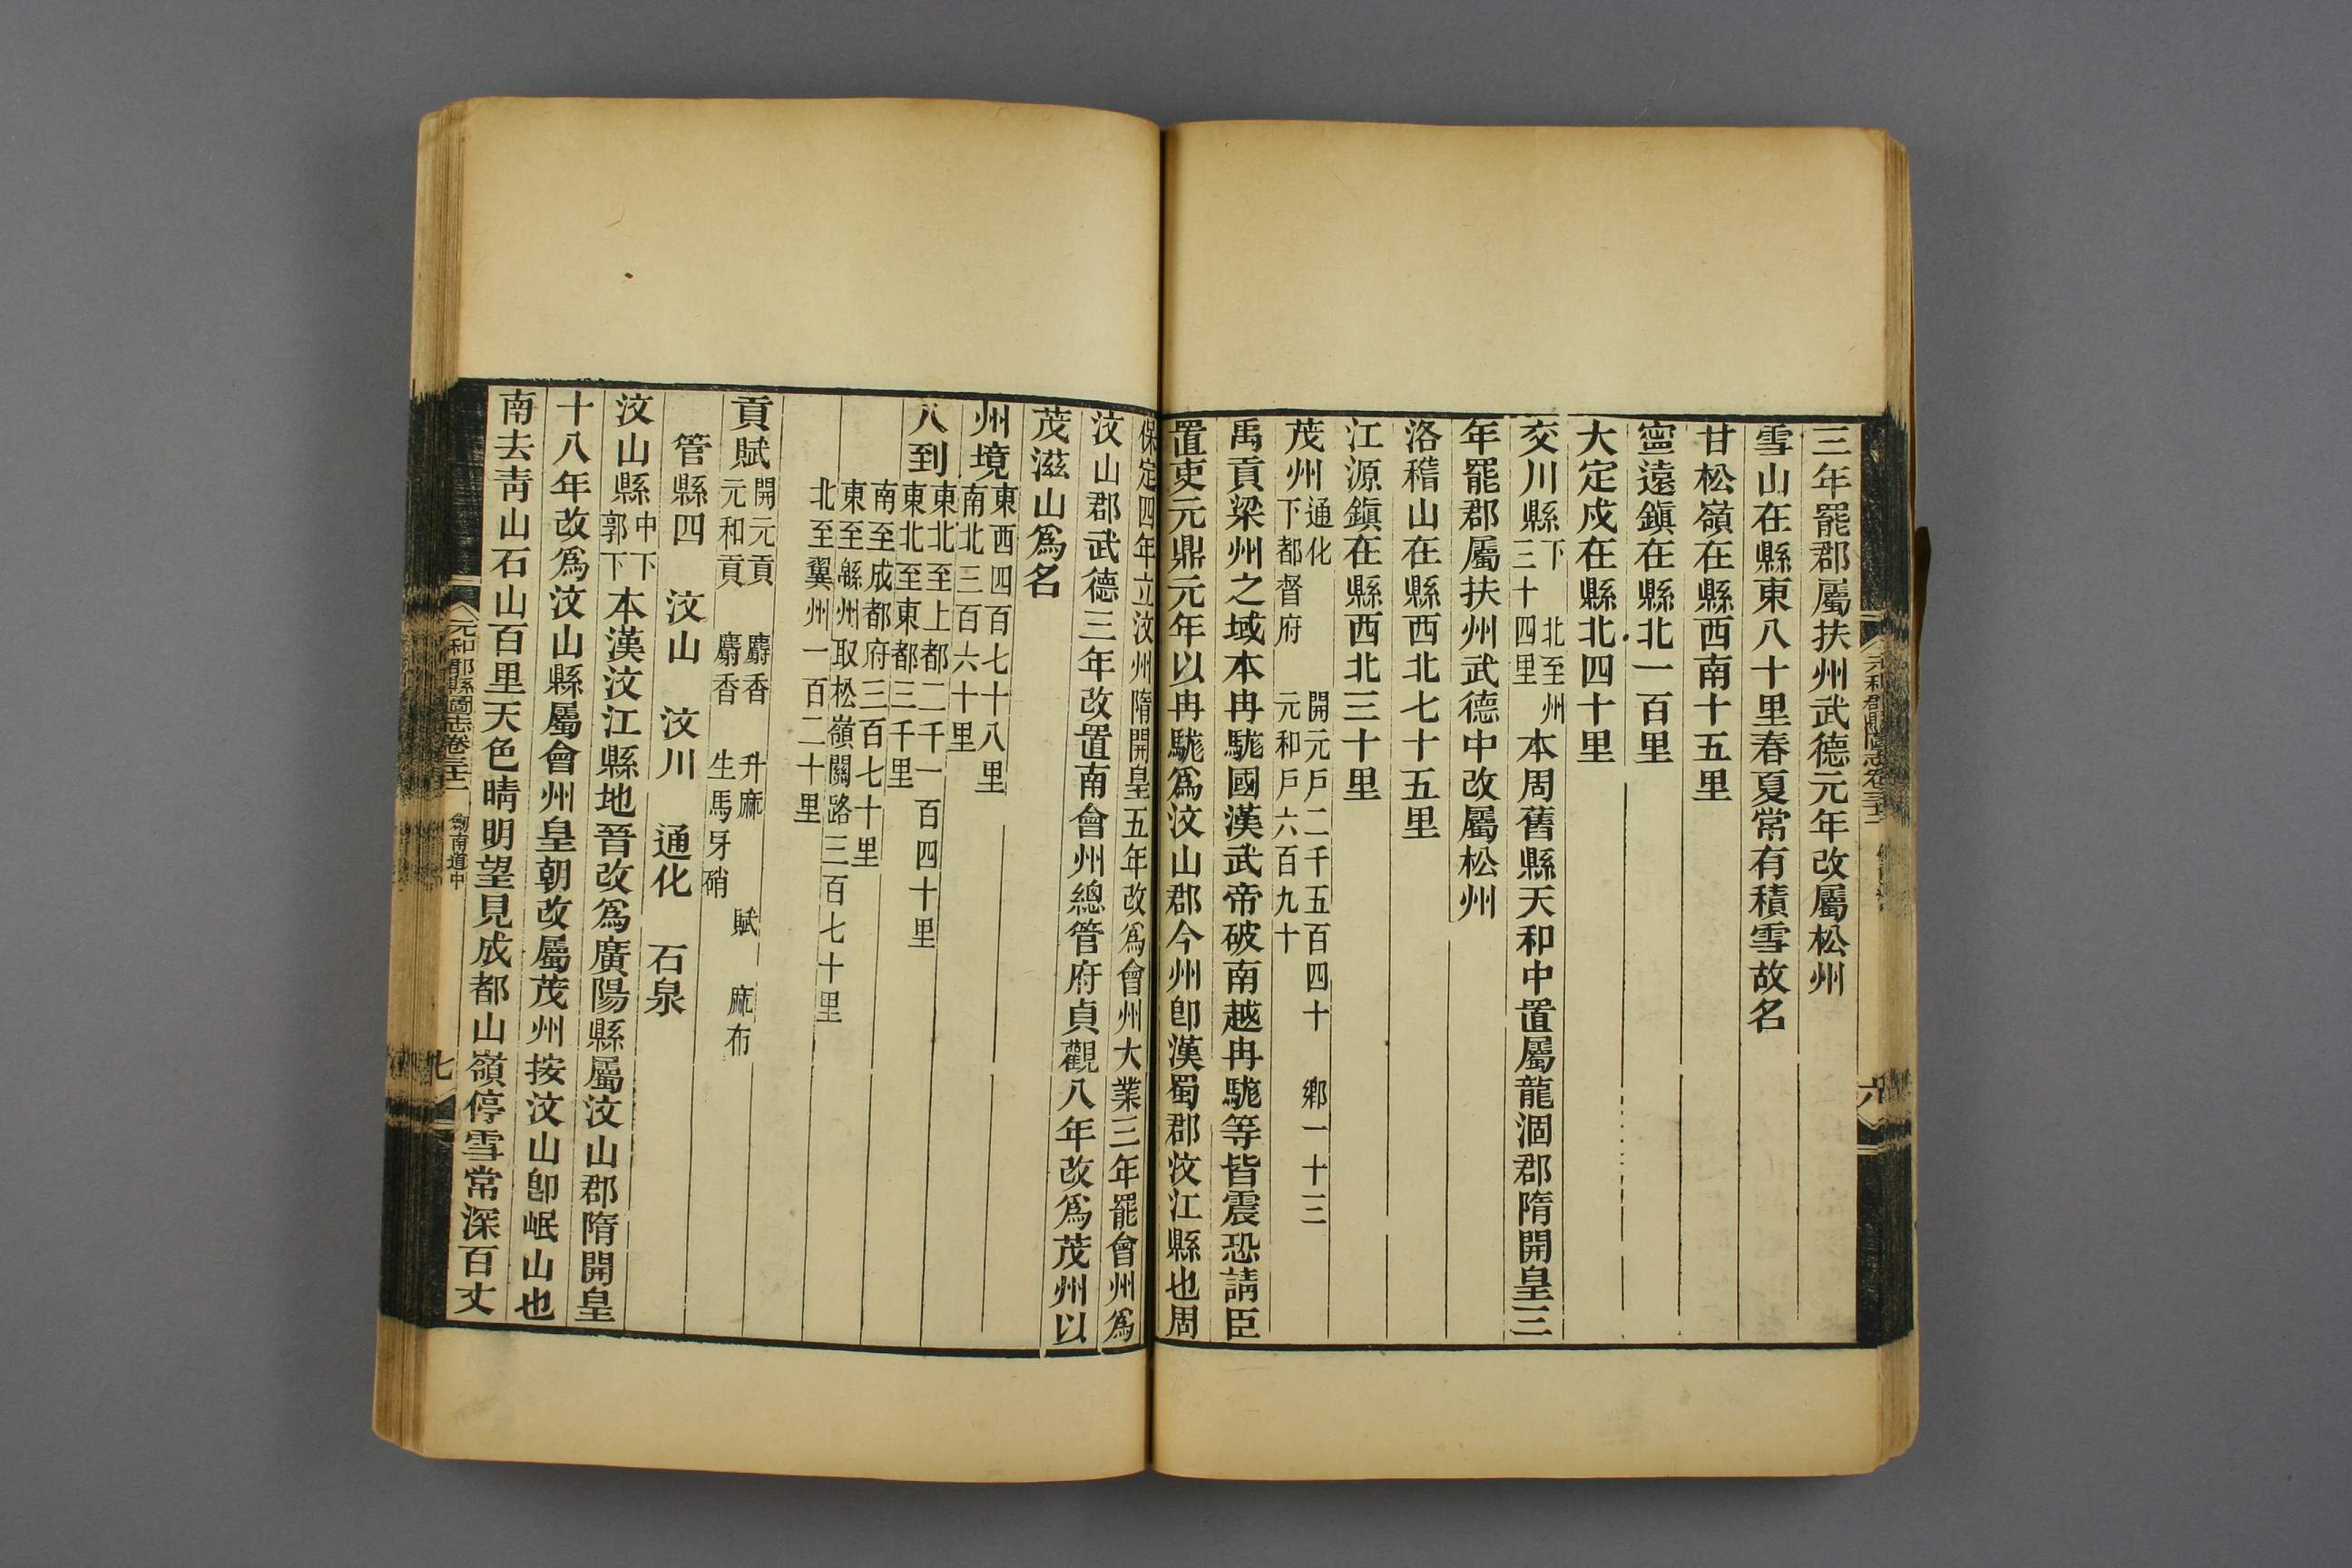 三年罷郡屬扶州武德元年改屬松州
雪山在縣東八十里春夏常有積雪故名
甘松嶺在縣西南十五里
寧遠鎭在縣北一百里
大定戍在縣北四十里
交川縣下　北至州三十四里本周舊縣天和中置屬龍涸郡隋開皇三
年罷郡屬扶州武德中改屬松州
洛稽山在縣西北七十五里
江源鎭在縣西北三十里
茂州通化下都督府　開元戶二千五百四十　鄉一十三元和戶六百九十
禹貢梁州之域本冉駹國漢武帝破南越冉駹等皆震恐請臣
置吏元鼎元年以冉駹爲汶山郡今州卽漢蜀郡汶江縣也周
保定四年立汶州隋開皇五年改爲會州大業三年罷會州爲
汶山郡武德三年改置南會州總管府貞觀八年改爲茂州以
茂滋山爲名
州境東西四百七十八里南北三百六十里
八到東北至上都二千一百四十里東北至東都三千里
南至成都府三百七十里東至緜州取松嶺關路三百七十里
北至翼州一百二十里
貢賦開元貢　麝香　升麻　賦　麻布元和貢　麝香　生馬牙硝
管縣四　汶山　汶川　通化　石泉
汶山縣中下郭下本漢汶江縣地晉改爲廣陽縣屬汶山郡隋開皇
十八年改爲汶山縣屬會州皇朝改屬茂州按汶山卽岷山也
南去靑山石山百里天色晴明望見成都山嶺停雪常深百丈
元和郡縣圖志卷三十二　劍南道中　七
六